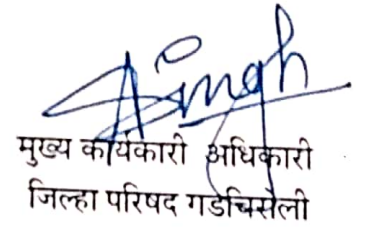 Singh
मुख्य कार्यकारी अधिकारी
जिल्हा परिषद गडचिरोली